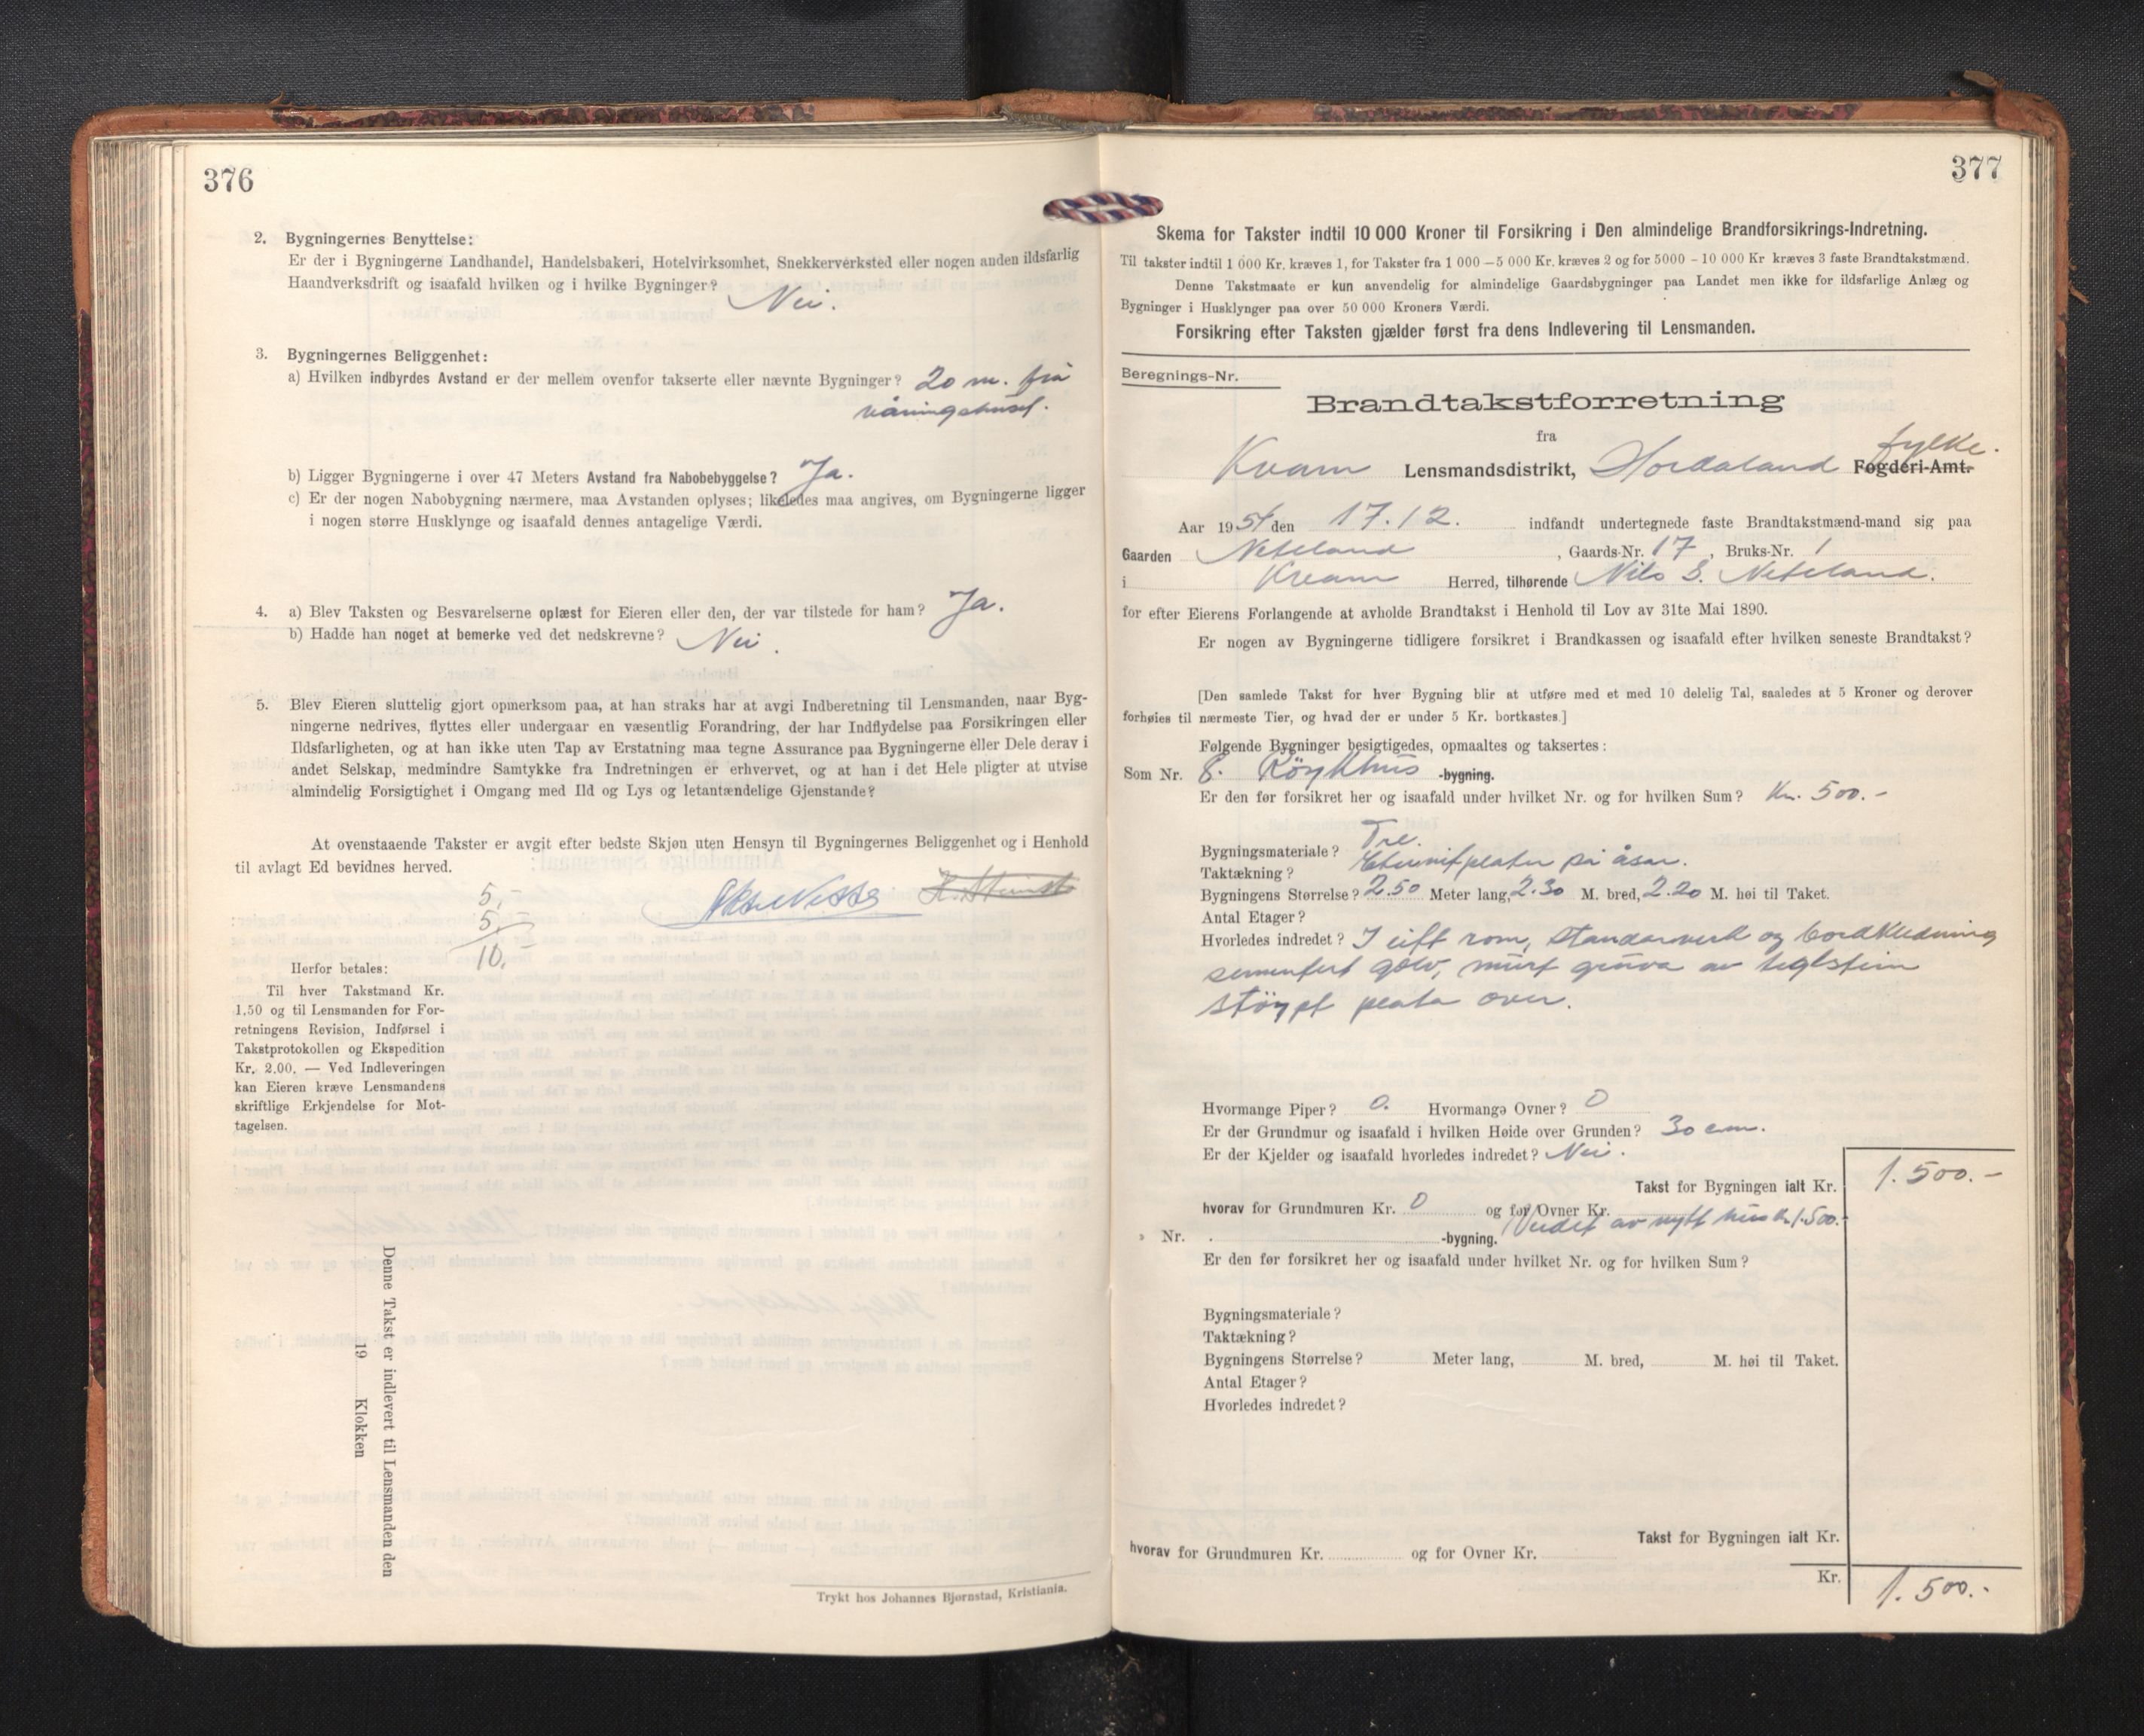 376
2. Bygningernes Benyttelse:
Er der i Bygningerne Landhandel, Handelsbakeri, Hotelvirksomhet, Snekkerverksted eller nogen anden ildsfarlig
Haandverksdrift og isaafald hvilken og i hvilke Bygninger? Nei.
3. Bygningernes Beliggenhet:
a) Hvilken indbyrdes Avstand er der mellem ovenfor takserte eller nævnte Bygninger? 20 m. frå
våningshuset.
b) Ligger Bygningerne i over 47 Meters Avstand fra Nabobebyggelse? Ja.
c) Er der nogen Nabobygning nærmere, maa Avstanden oplyses; likeledes maa angives, om Bygningerne ligger
i nogen større Husklynge og isaafald dennes antagelige Værdi.
4. a) Blev Taksten og Besvarelserne oplæst for Eieren eller den, der var tilstede for ham? Ja.
b) Hadde han noget at bemerke ved det nedskrevne? Nei.
5. Blev Eieren sluttelig gjort opmerksom paa, at han straks har at avgi Indberetning til Lensmanden, naar Byg-
ningerne nedrives, flyttes eller undergaar en væsentlig Forandring, der har Indflydelse paa Forsikringen eller
Ildsfarligheten, og at han ikke uten Tap av Erstatning maa tegne Assurance paa Bygningerne eller Dele derav i
andet Selskap, medmindre Samtykke fra Indretningen er erhvervet, og at han i det Hele pligter at utvise
almindelig Forsigtighet i Omgang med Ild og Lys og letantændelige Gjenstande?
At ovenstaaende Takster er avgit efter bedste Skjøn uten Hensyn til Bygningernes Beliggenhet og i Henhold
til avlagt Ed bevidnes herved.
5.-
5.-
10.-
Herfor betales:
Til hver Takstmand Kr.
1.50 og til Lensmanden for For-
retningens Revision, Indførsel i
Takstprotokollen og Ekspedition
Kr. 2.00. — Ved Indleveringen
kan Eieren kræve Lensmandens
skriftlige Erkjendelse for Mot-
tagelsen.
Denne Takst er indlevert til Lensmanden den
19 Klokken
Trykt hos Johannes Bjørnstad, Kristiania.
377
Skema for Takster indtil 10 000 Kroner til Forsikring i Den almindelige Brandforsikrings-Indretning.
Til takster indtil 1 000 Kr. kræves 1, for Takster fra 1 000 – 5 000 Kr. kræves 2 og for 5000 – 10 000 Kr kræves 3 faste Brandtakstmænd.
Denne Takstmaate er kun anvendelig for almindelige Gaardsbygninger paa Landet men ikke for ildsfarlige Anlæg og
Bygninger i Husklynger paa over 50 000 Kroners Værdi.
Forsikring efter Taksten gjælder først fra dens Indlevering til Lensmanden.
Beregnings-Nr.
Brandtakstforretning
fra
Kvam Lensmandsdistrikt, Hordaland Fogderi-Amt. fylke.
Aar 1954 den 17.12. indfandt undertegnede faste Brandtakstmænd-mand sig paa
Gaarden Neteland, Gaards-Nr. 17, Bruks-Nr. 1
i Kvam Herred, tilhørende Nils S. Neteland.
for efter Eierens Forlangende at avholde Brandtakst i Henhold til Lov av 31te Mai 1890.
Er nogen av Bygningerne tidligere forsikret i Brandkassen og isaafald efter hvilken seneste Brandtakst?
[Den samlede Takst for hver Bygning blir at utføre med et med 10 delelig Tal, saaledes at 5 Kroner og derover
forhøies til nærmeste Tier, og hvad der er under 5 Kr. bortkastes.]
Følgende Bygninger besigtigedes, opmaaltes og taksertes:
Som Nr. 8. Röykhus -bygning.
Er den før forsikret her og isaafald under hvilket Nr. og for hvilken Sum? Kr. 500.-
Bygningsmateriale? Tre.
Taktækning? Eternitplater på åsar.
Bygningens Størrelse? 2.50 Meter lang, 2.30 M. bred, 2.20 M. høi til Taket.
Antal Etager?
Hvorledes indredet? I eitt rom, standarverk og bordkledning
sementert golv, murt gruva av teglstein
stöypt plata over.
Hvormange Piper? 0. Hvormange Ovner? 0
Er der Grundmur og isaafald i hvilken Høide over Grunden? 30 cm.
Er der Kjelder og isaafald hvorledes indredet? Nei.
Takst for Bygningen ialt Kr. 1.500.-
hvorav for Grundmuren Kr. 0 og for Ovner Kr.
av nytt hus kr. 1.500.-
» Nr. -bygning.
Er den før forsikret her og isaafald under hvilket Nr. og for hvilken Sum?
Bygningsmateriale?
Taktækning?
Bygningens Størrelse? Meter lang, M. bred, M. høi til Taket.
Antal Etager?
Hvorledes indredet?
Takst for Bygningen ialt Kr.
hvorav for Grundmuren Kr. og for Ovner Kr.
Kr. 1.500.-